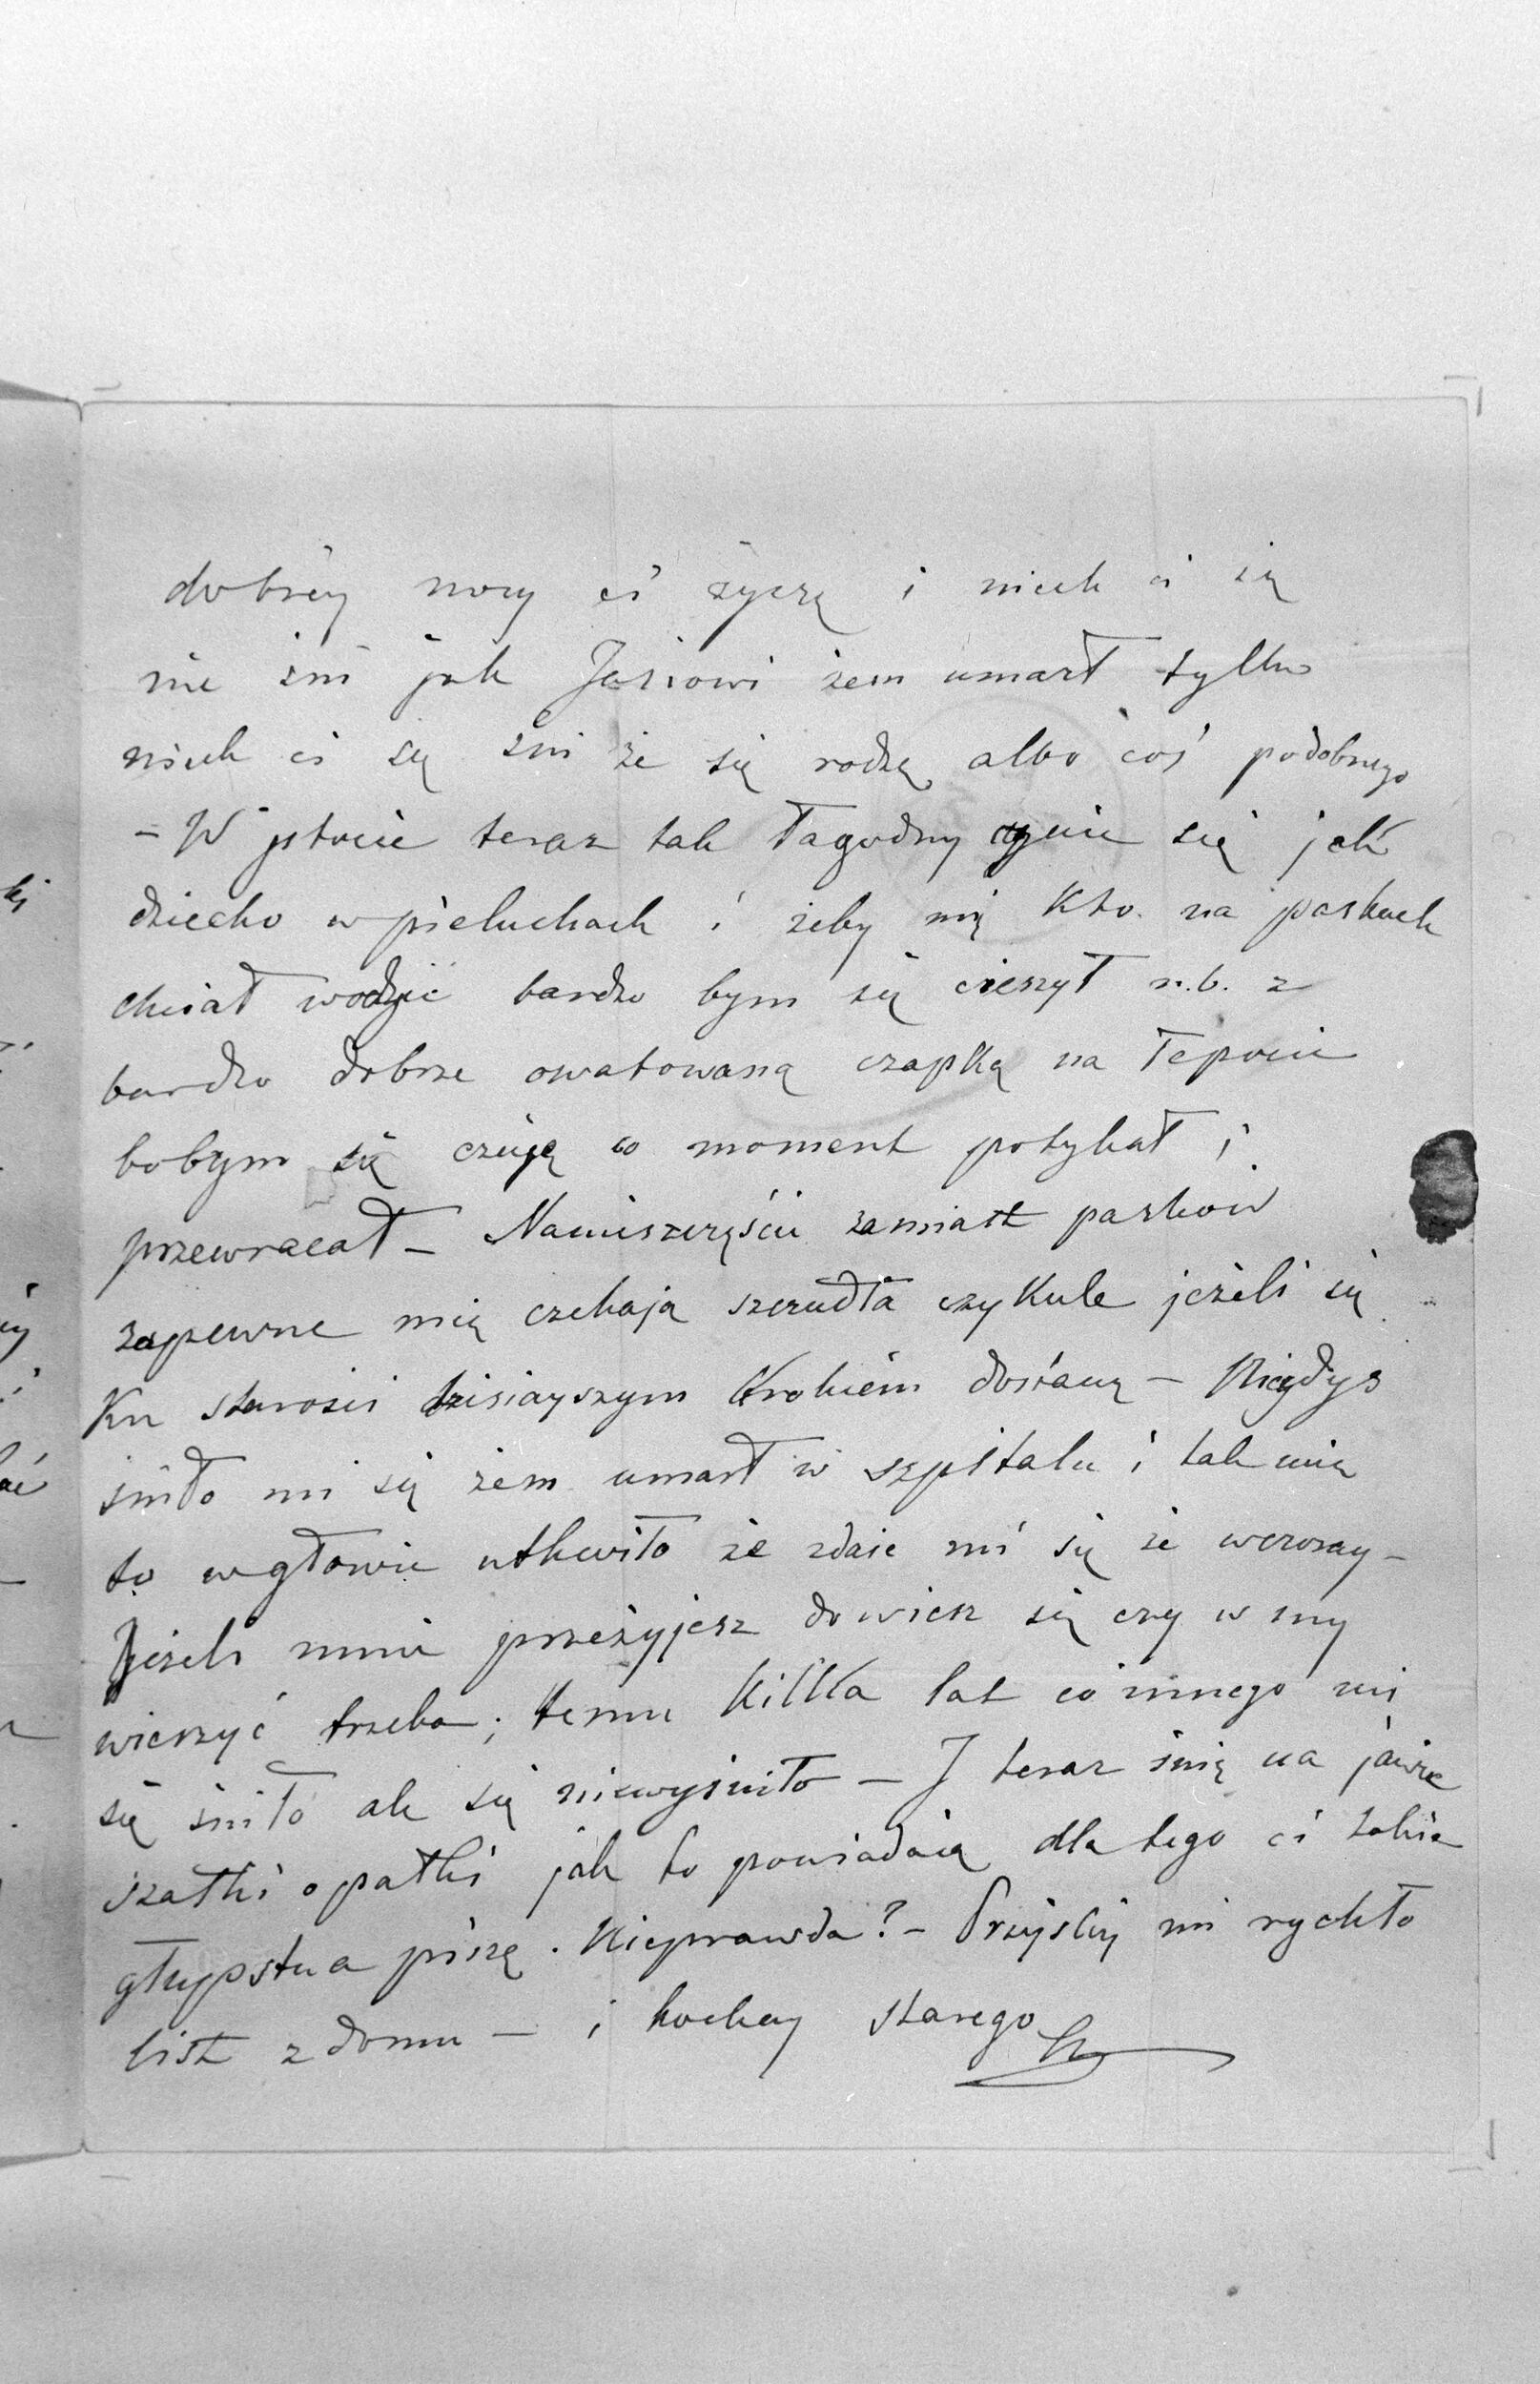 dobrey nocy ci życzę i niech ci się
nie śni jak Jasiowi żem umarł tylko
niech ci się śni że się rodzę albo coś podobnego
– W istocie teraz tak łagodny czuię się jak
dziecko w pieluchach i żeby mię kto na paskach
chciał wodzić bardzo bym się cieszył n.b. z
bardzo dobrze owatowaną czapką na łepecie
bobym się czuję co moment potykał i
przewracał – Nanieszczęście zamiast pasków
zapewne mię czekają szczudła czy kule jeżeli się
ku starości dzisiayszym krokiem dostanę – Niegdyś
śniło mi się żem umarł w szpitalu i tak mię
to w głowie utkwiło że zdaie mi się że wczoray –
Jeżeli mnie przeżyjesz dowiesz się czy w sny
wierzyć trzeba; temu kilka lat co innego mi
się śniło ale się niewyśniło – I teraz śnię na jawie
szatki opatki jak to powiadaią dla tego ci takie
głupstwa piszę. Nieprawda? – Przyśliy mi rychło
list z domu – i kochay starego
Ch